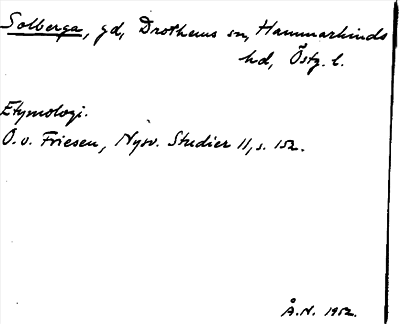 Solberga, gd, Drothems sn, Hammarkinds
hd, Östg. l.
Etymologi.
O. v. Friesen, Nysv. Studier 11, s. 152.
Å.N. 1952.